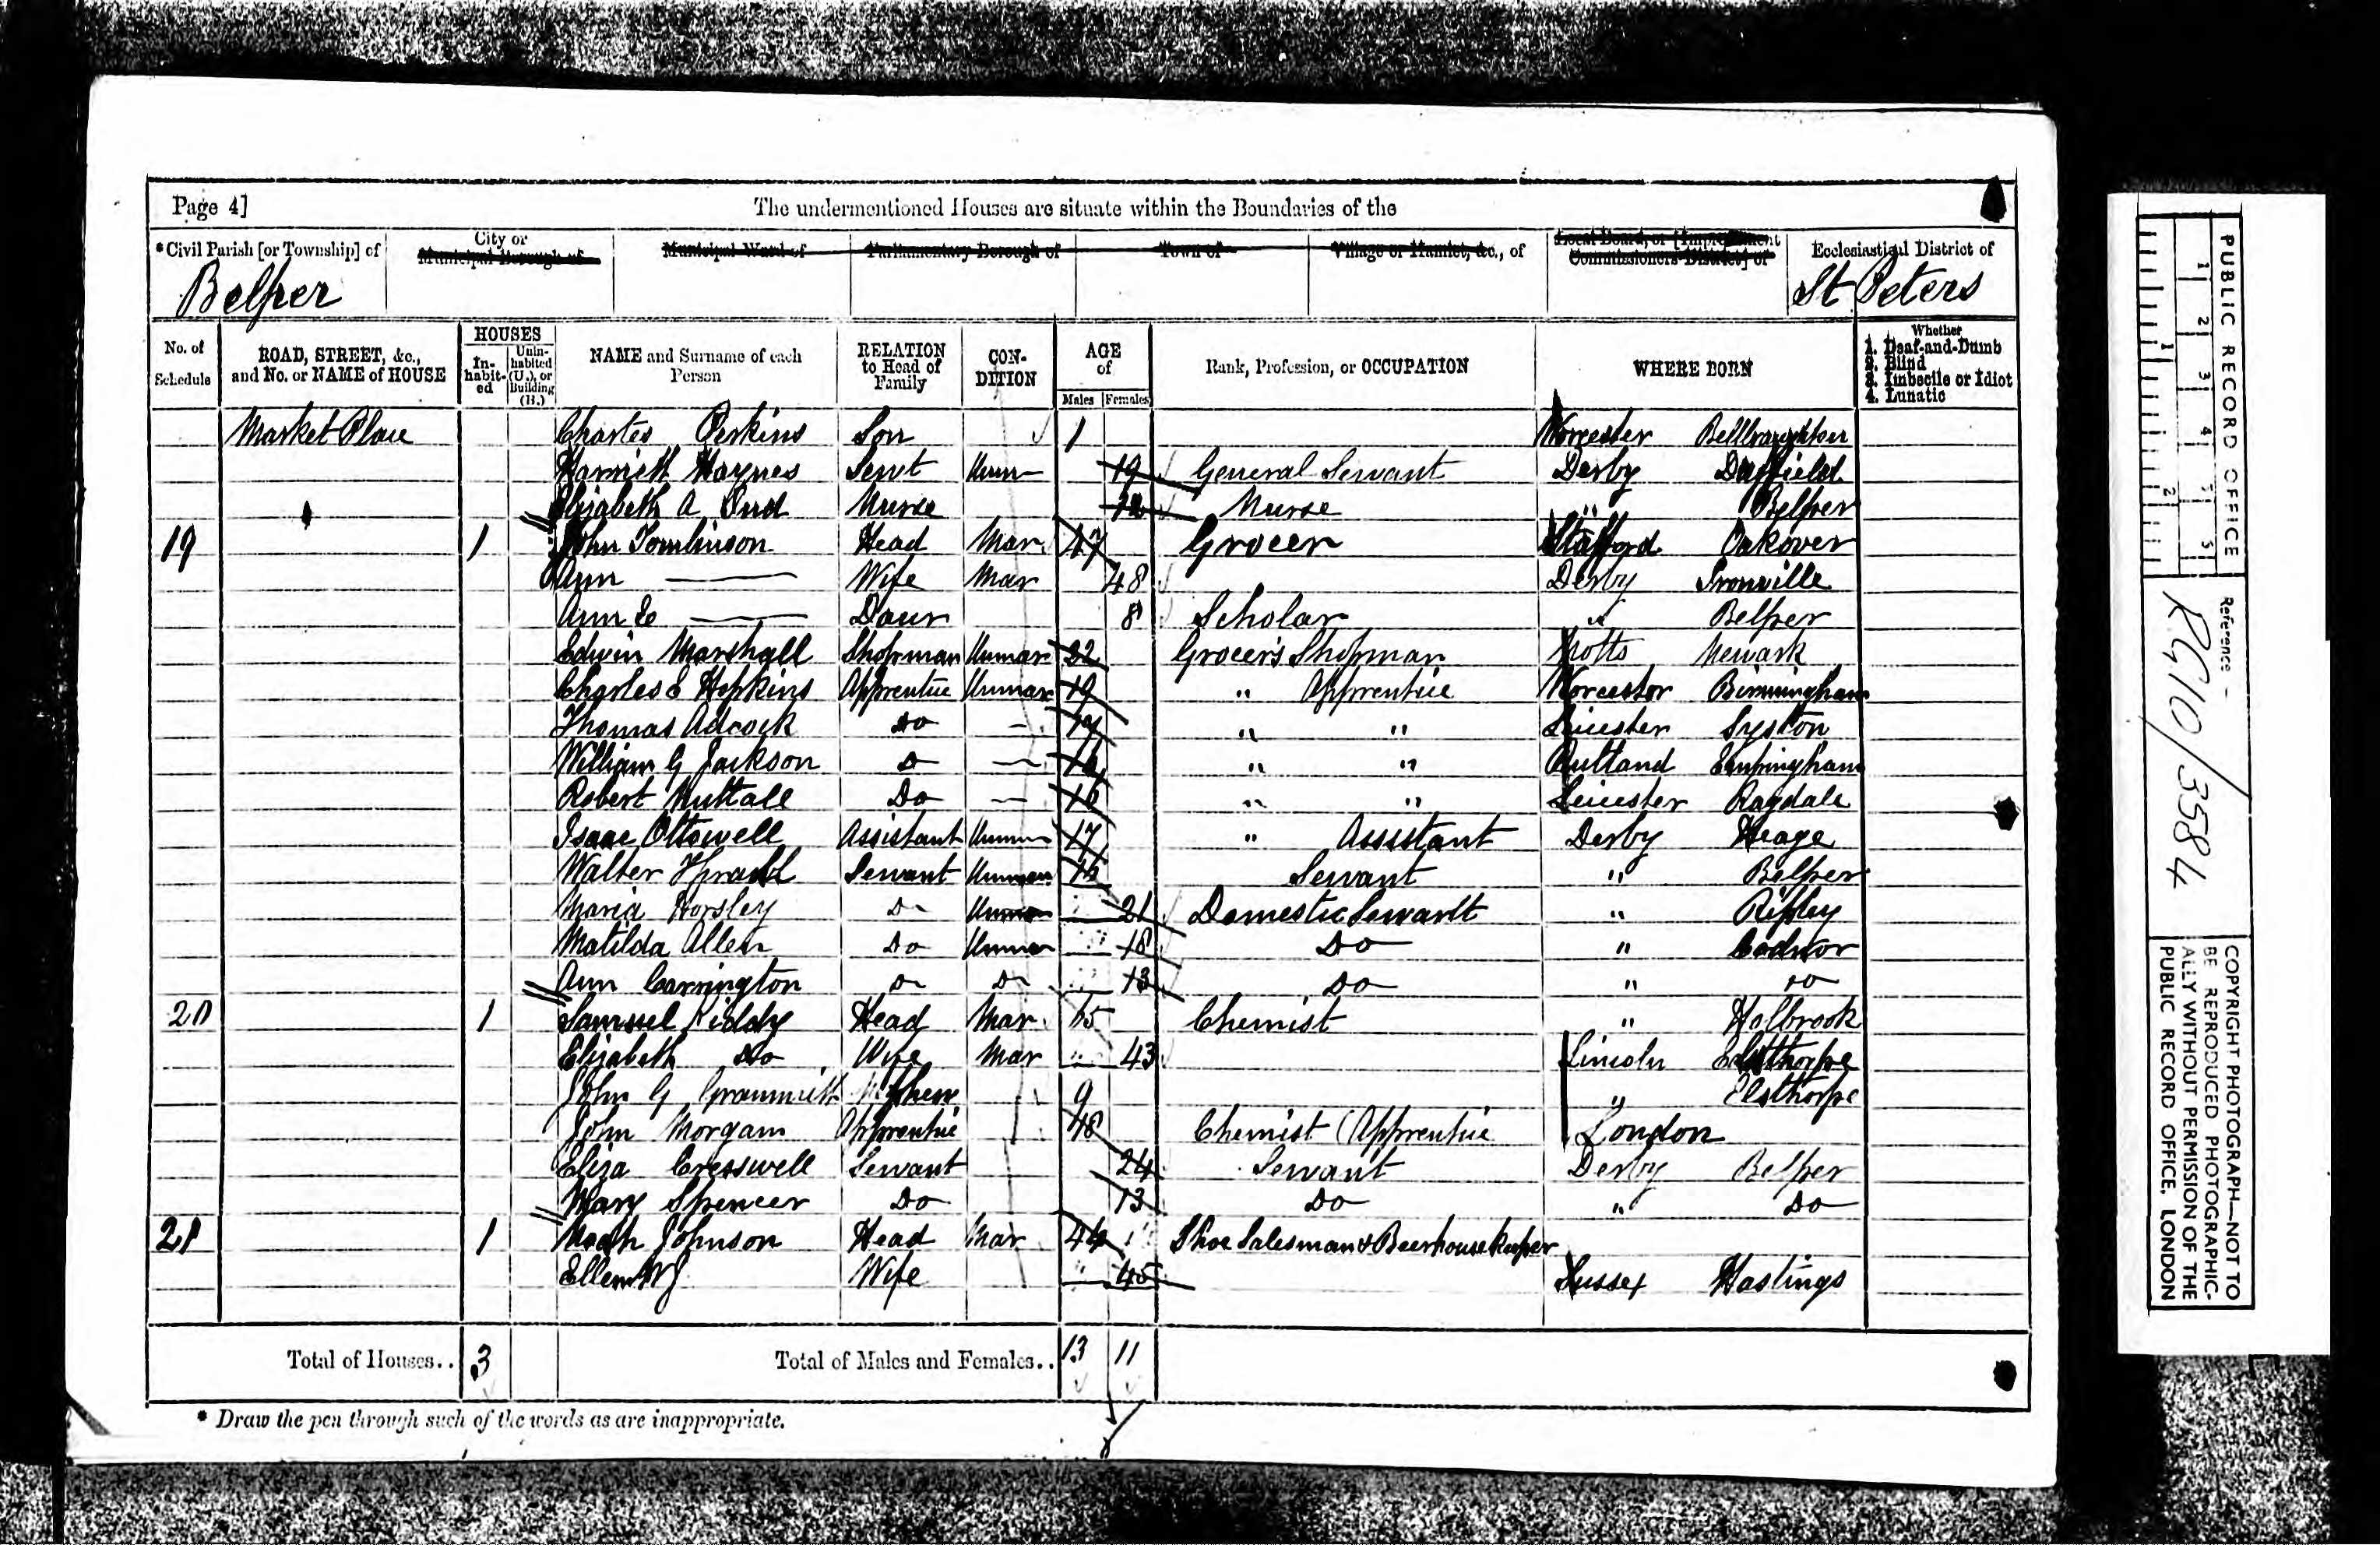 Page 4]
The undermentioned Houses are situate within the Boundaries of the
*Civil Parish [or Township] of
City or Municipal Borough of
Municipal Ward of
Parliamentary Borough of
Town of
Village or Hamlet, &c., of
Local Board, or [Improvement Commissioners District] of
Ecclesiastical District of
Belper
St Peters
No. of Schedule
ROAD, STREET, &c., and No. or NAME of HOUSE
HOUSES
In-habit-ed
Unin-habited (U.), or Building (B.)
NAME and Surname of each Person
RELATION to Head of Family
CON-DITION
AGE of
Males Females
Rank, Profession, or OCCUPATION
WHERE BORN
Whether
1. Deaf-and-Dumb
2. Blind
3. Imbecile or Idiot
4. Lunatic
Market Place Charles Perkins Son 1 Worcester Bellbroughton
Harriett Haynes Servt Unm 19 General Servant Derby Duffield
Elizabeth A Nurse Nurse " Belper
19 1 John Tomlinson Head Mar 47 Grocer Stafford Oakover
Ann — Wife Mar 48 Derby Ironville
Ann E — Daur 8 Scholar " Belper
Edwin Marshall Shopman Unmar 22 Grocer's Shopman Notts Newark
Charles E Hopkins Apprentice Unmar 19 " Apprentice Worcester Birmingham
Thomas Adcock Do - " " Leicester Syston
William G Jackson Do — 16 " " Rutland Empingham
Robert Nuttall Do — 16 " " Leicester Ragdale
Isaac Ottewell Assistant Unmar 17 " Assistant Derby Heage
Walter Servant Unmar Servant " Belper
Maria Horsley Do Unmar 21 Domestic Servant " Ripley
Matilda Allen Do Unmar 18 Do " Codnor
Ann Carrington Do Do 13 Do " Do
20 1 Samuel Kiddy Head Mar Chemist " Holbrook
Elizabeth Do Wife Mar 43 Lincoln
John G Nephew 9 " Elsthorpe
John Morgam Apprentice 18 Chemist (Apprentice London
Eliza Cresswell Servant 24 Servant Derby Belper
Mary Spencer Do 13 Do " Do
21 1 Noah Johnson Head Mar 44 Shoe Salesman & Beerhouse keeper
Ellen W J Wife 45 Sussex Hastings
Total of Houses.. 3 Total of Males and Females.. 13 11
* Draw the pen through such of the words as are inappropriate.
PUBLIC RECORD OFFICE
1 2 3 4 5
1 2
Reference -
RG10/3584
COPYRIGHT PHOTOGRAPH—NOT TO
BE REPRODUCED PHOTOGRAPHIC-
ALLY WITHOUT PERMISSION OF THE
PUBLIC RECORD OFFICE, LONDON